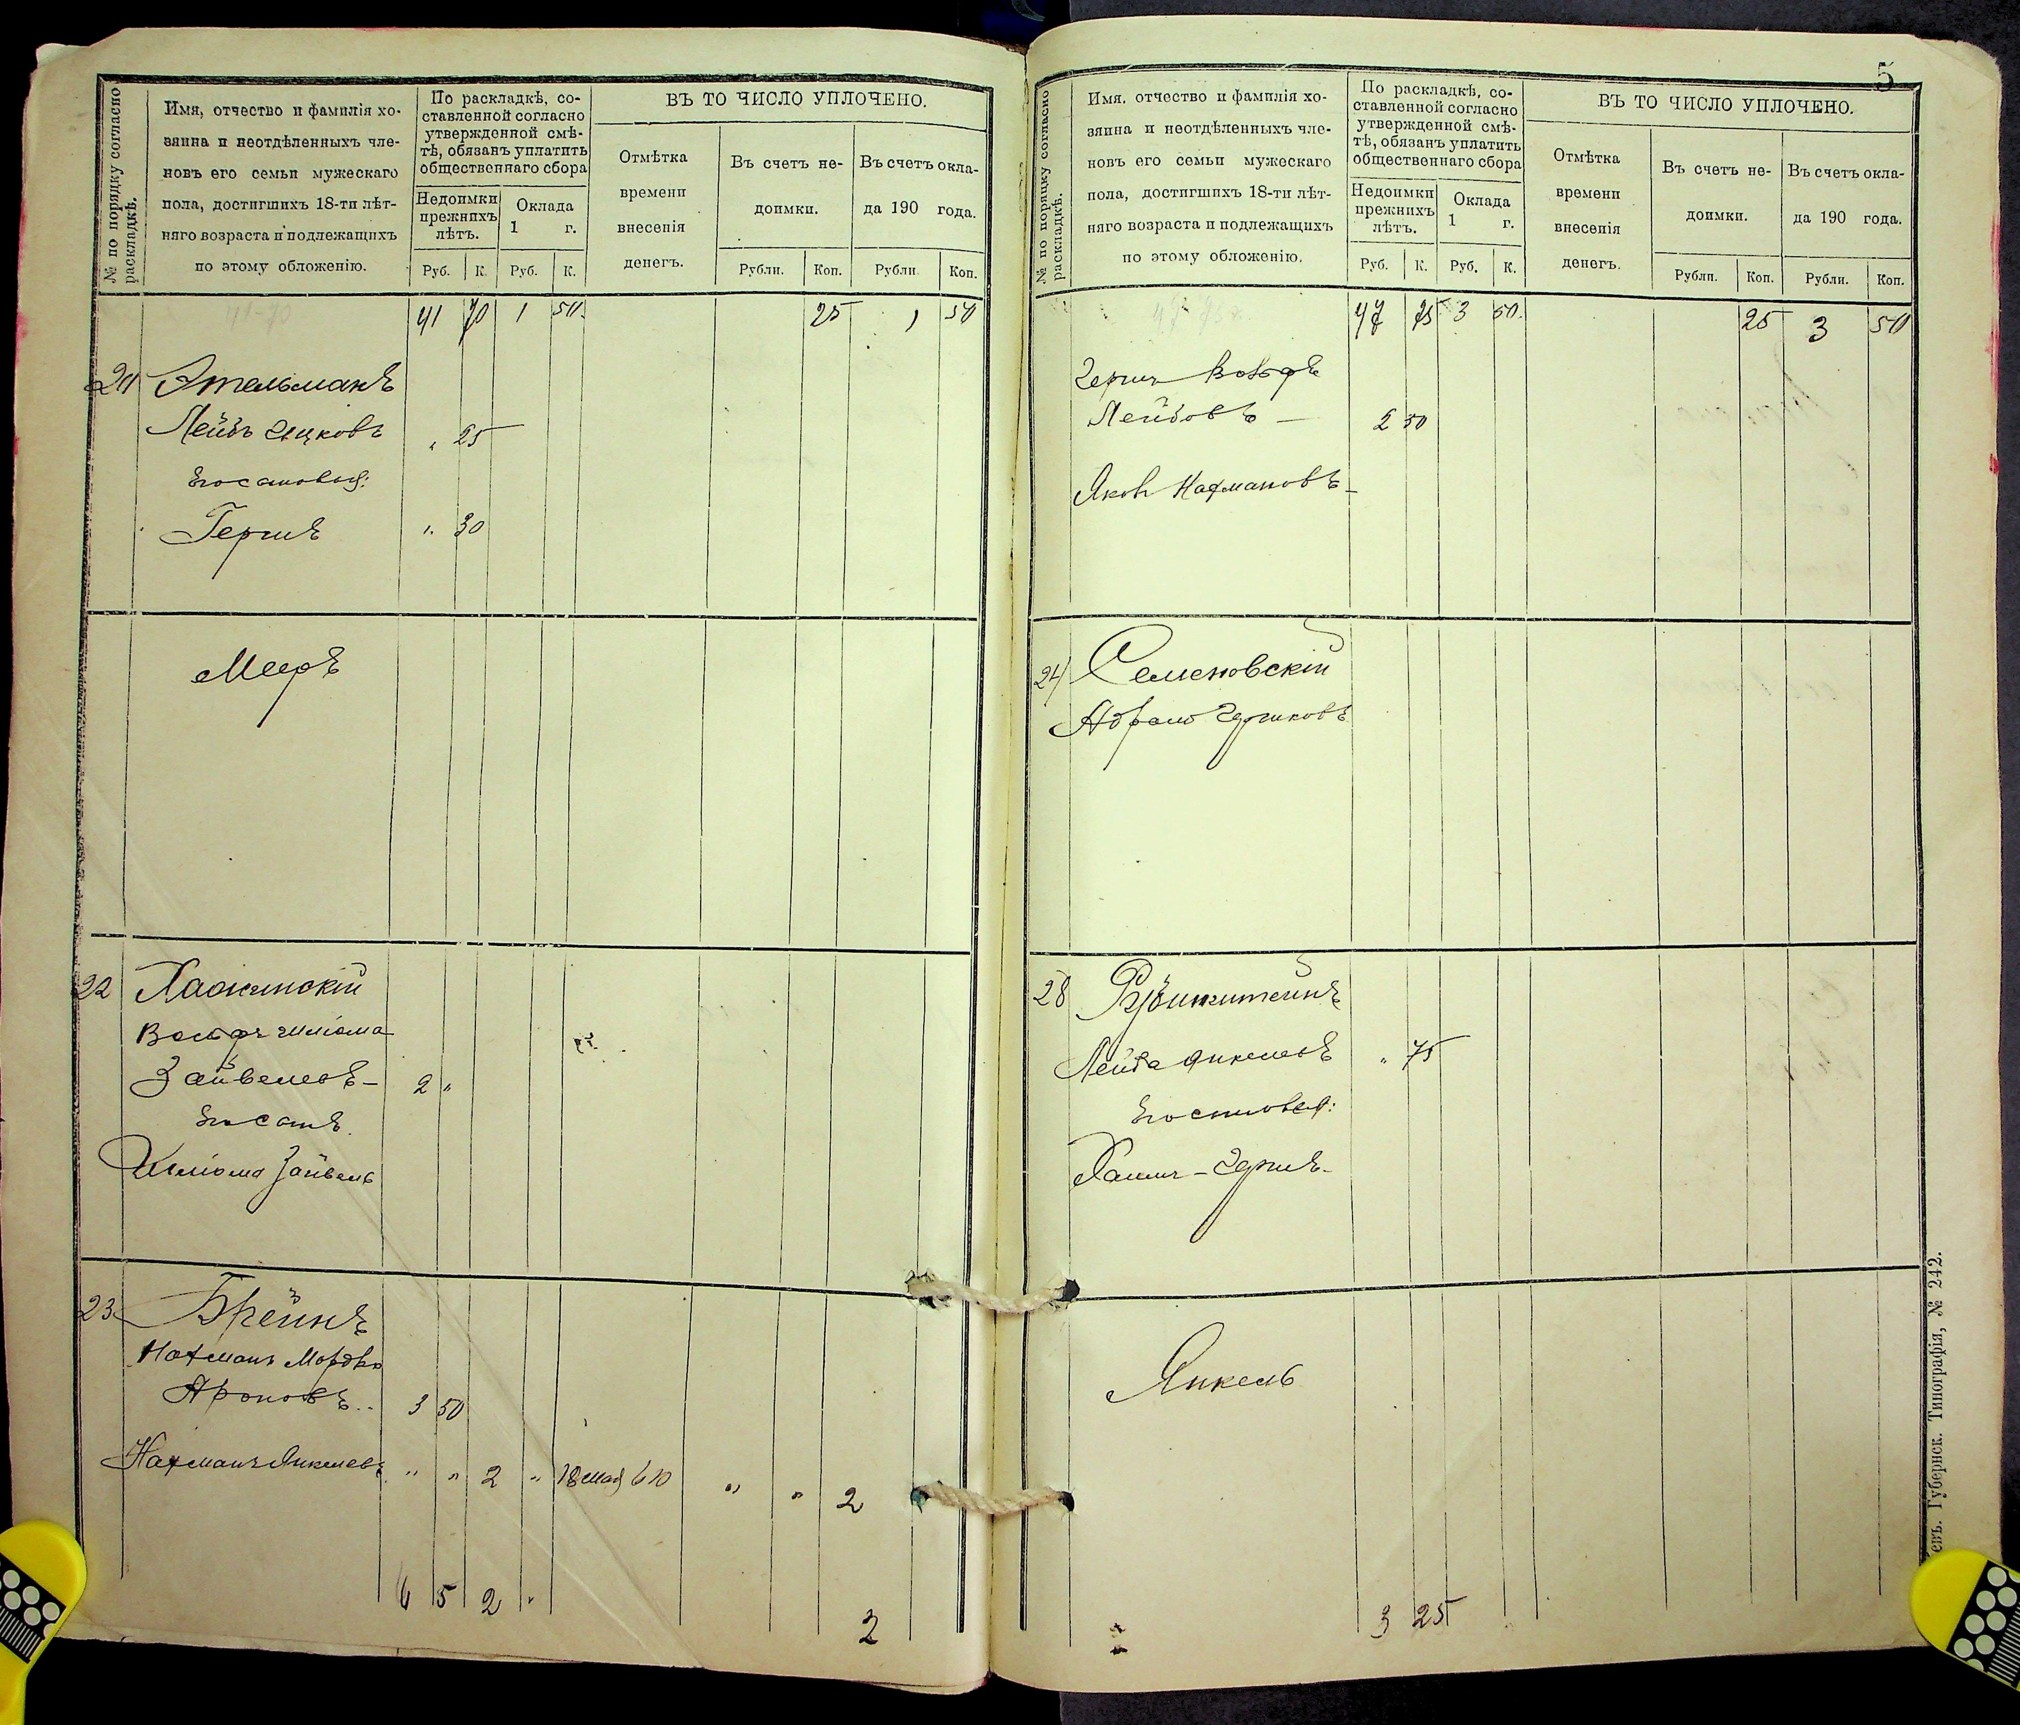 № по порядку согласно раскладкѣ.
Имя, отчество и фамилія хо-
зяина и неотдѣленныхъ чле-
новъ его семьи мужескаго
пола, достигшихъ 18-ти лѣт-
няго возраста и подлежащихъ
по этому обложенію.
По раскладкѣ, со-
ставленной согласно
утвержденной смѣ-
тѣ, обязанъ уплатить
общественнаго сбора
Недоимки
прежнихъ
лѣтъ.
Оклада
1 г.
Руб. К. Руб. К.
ВЪ ТО ЧИСЛО УПЛОЧЕНО.
Отмѣтка
времени
внесенія
денегъ.
Въ счетъ не-
доимки.
Въ счетъ окла-
да 190 года.
Рубли. Коп. Рубли Коп.
41 70 1 50 25 1 50
Ательманъ
Лейбъ Ицковъ " 25
Его сыновья:
Гершъ " 30
Мееръ
22 Хаскинскій
Вольфъ Шліома
Зайвелевъ 2 "
Его сынъ
Шліома Зайвель
23 Брейнъ
Нахманъ Мордко
Ароновъ 3 50
Нахманъ Янкелевъ " " 2 " 18 мая 610 " " 2
6 5 2 "
2
5
№ по порядку согласно раскладкѣ.
Имя, отчество и фамилія хо-
зяина и неотдѣленныхъ чле-
новъ его семьи мужескаго
пола, достигшихъ 18-ти лѣт-
няго возраста и подлежащихъ
по этому обложенію.
По раскладкѣ, со-
ставленной согласно
утвержденной смѣ-
тѣ, обязанъ уплатить
общественнаго сбора
Недоимки
прежнихъ
лѣтъ.
Оклада
1 г.
Руб. К. Руб. К.
ВЪ ТО ЧИСЛО УПЛОЧЕНО.
Отмѣтка
времени
внесенія
денегъ.
Въ счетъ не-
доимки.
Въ счетъ окла-
да 190 года.
Рубли. Коп. Рубли. Коп.
47 75 3 50 25 3 50
Гершъ Вольфъ
Лейбовъ 2 50
Яковъ Нахмановъ
24 Семеновскій
Абрамъ Гершковъ
28 Рубинштейнъ
Лейба Янкелевъ " 75
Его сыновья:
Хаимъ-Гершъ
Янкель
3 25
Губернск. Типографія, № 242.